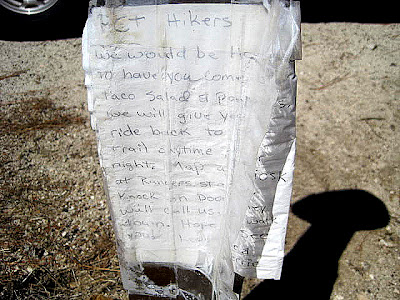 PCT Hikers
we would be
to have you come
Taco Salad &
we will give you
ride back to
trail anytime
night. Map
at Rangers sta
Knock on Door
will call us
down. Hope
your